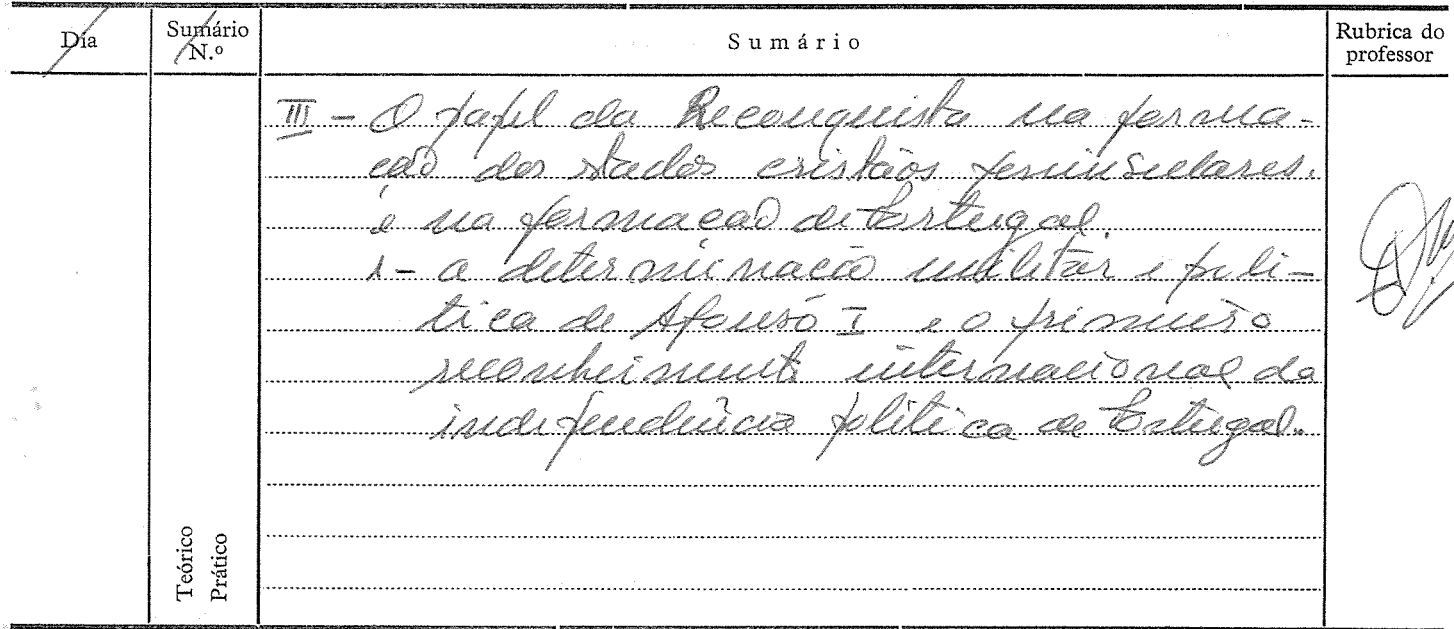 Dia
Sumário
N.º
Sumário
Rubrica do
professor
III - O papel da Reconquista na forma-
ção dos Estados cristãos peninsulares.
e na formação de Portugal.
1- a determinação militar e polí-
tica de Afonso I e o primeiro
reconhecimento internacional da
independência política de Portugal.
Teórico
Prático